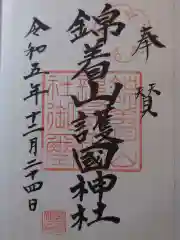 奉賛
錦着山護國神社
令和五年十二月二十四日